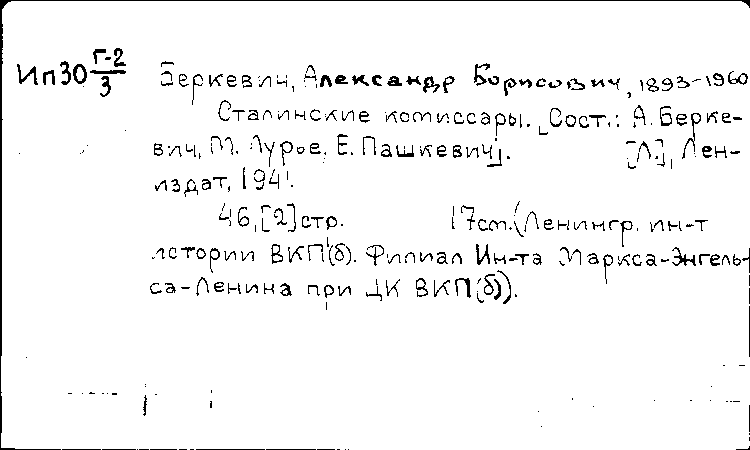 Ип30 Г-2/3 Беркевич, Александр Борисович, 1893-1960
Сталинские комиссары. [Сост.: А. Берке-
вич, М. Лурье, Е. Пашкевич]. [Л.], Лен-
издат, 1941.
46,[2]стр. 17см.(Ленингр. ин-т
истории ВКП(б). Филиал Ин-та Маркса-Энгель-
са-Ленина при ЦК ВКП(б)).